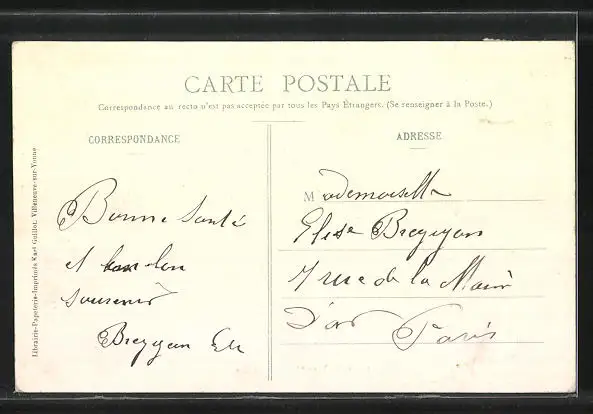 CARTE POSTALE
Correspondance au recto n'est pas acceptée par tous les Pays Étrangers. (Se renseigner à la Poste.)
CORRESPONDANCE
Bonne Santé
et bon
souvenir
ADRESSE
Mademoiselle
Elise
7 rue de la Main
D'or Paris
Librairie-Papeterie-Imprimés Karl Guillot, Villeneuve-sur-Yonne